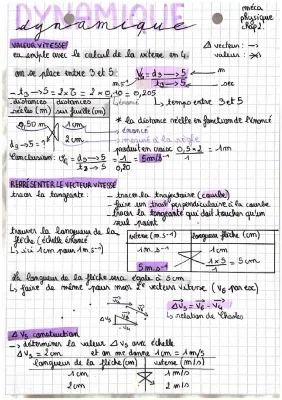 DYNAMIQUE
dynamique
méca
physique
chap2.
VALEUR VITESSE
ex simple avec le calcul de la vitesse en 4.
Δ vecteur : →
valeurs :
on se place entre 3 et 5
V4 = d3→5 / t3→5
m
sec
- t3→5 = 2×τ = 2×0,10 = 0,20s
↳ énoncé
↳ temps entre 3 et 5
distances réelles (m)
distances sur feuille (cm)
0,50 m
1 cm
d3→5 = ?
2 cm
* la distance réelle en fonction de l'énoncé
énoncé
mesuré à la règle
produit en croix 0,5×2 / 1 = 1m
Conclusion : V4 = d3→5 / t3→5 = 1 / 0,20 = 5 m/s⁻¹
REPRÉSENTER LE VECTEUR VITESSE
tracer la tangente :
- tracer la trajectoire (courbe)
- faire un trait perpendiculaire à la courbe
- tracer la tangente qui doit toucher qu'un seul point
trouver la longueur de la flèche (échelle énoncé
↳ ici 1cm pour 1m.s⁻¹)
vitesse (m.s⁻¹)
longueur flèche (cm)
1 m.s⁻¹
1 cm
5 m.s⁻¹
1×5 / 1 = 5 cm
la longueur de la flèche sera égale à 5 cm
↳ faire de même pour mon 2e vecteur vitesse (V6 par ex)
V6
ΔV5
-V4
ΔV5 = V6 - V4
↳ relation de Chasles
ΔV5 construction
→ déterminer la valeur ΔV5 avec échelle
ΔV5 = 2cm et on me donne 1cm = 1m/s
longueur de la flèche (cm)
vitesse (m/s)
1 cm
1 m/s
2 cm
2 m/s